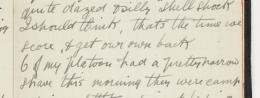 quite dazed & silly, shell shock
I should think, that's the time we
score, & get our own back
6 of my platoon had a pretty narrow
shave this morning they were camp